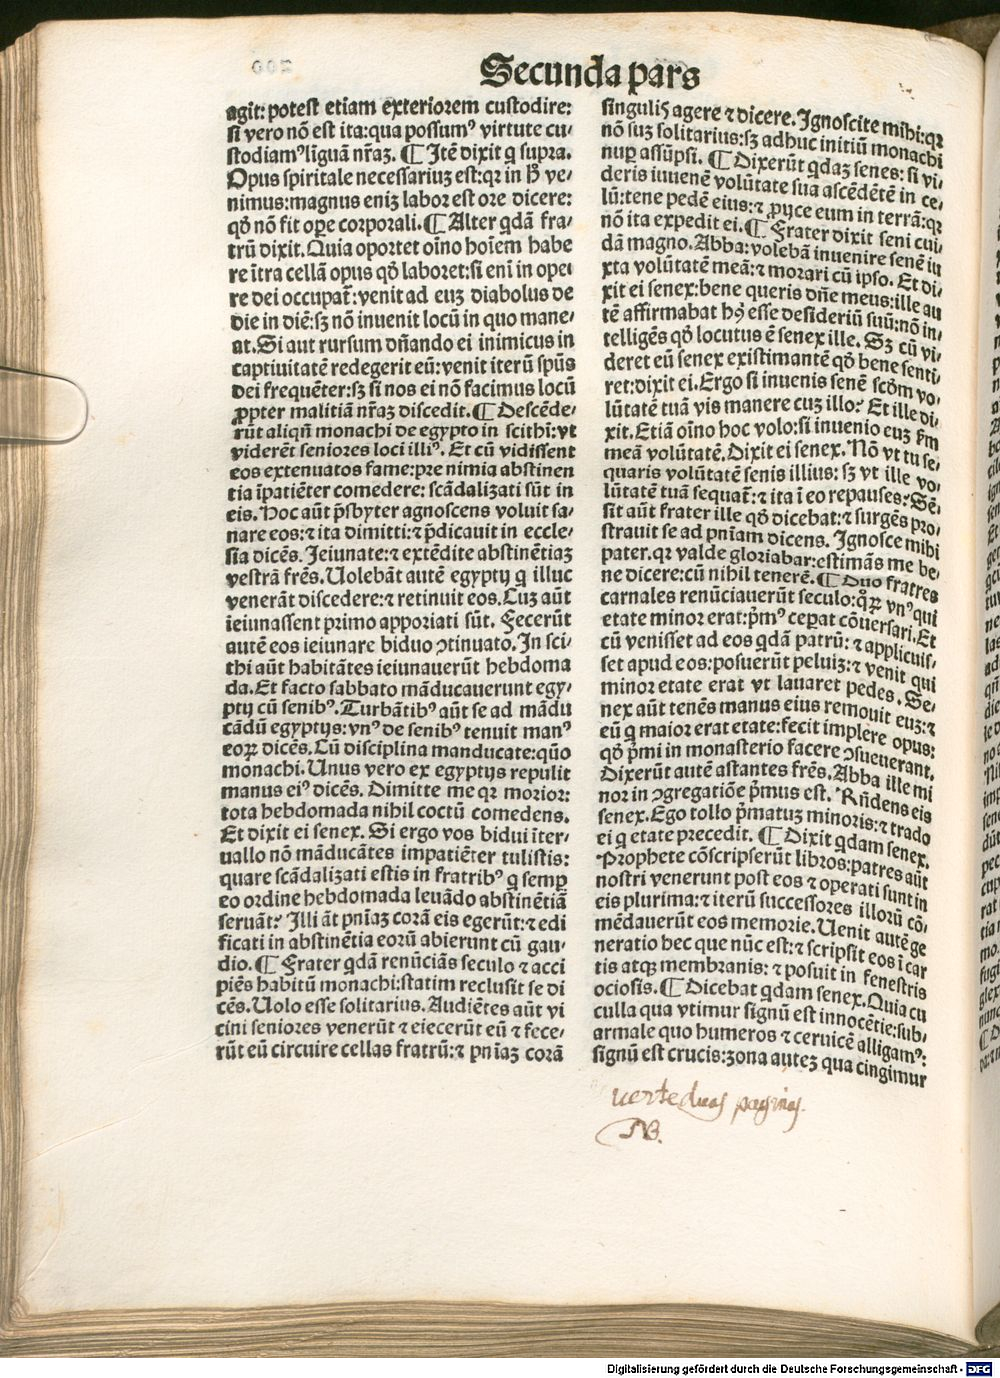 Secunda pars
agit: potest etiam exteriorem custodire:
si vero nõ est ita: qua possumꝰ virtute cu⸗
stodiamꝰ lĩguã nr̃aʒ. ¶ Itẽ dixit q̃ supra.
Opus spiritale necessariuʒ est: qꝛ in hͦ ve⸗
nimus: magnus eniʒ labor est ore dicere:
qđ nõ fit oꝑe corporali. ¶ Alter qdã fra⸗
trũ dixit. Quia oportet oĩno hoĩem habe
re ĩtra cellã opus qđ laboret: si enĩ in opeɩ
re dei occupat̃: venit ad euʒ diabolus de
die in diẽ: sʒ nõ inuenit locũ in quo mane⸗
at. Si aut rursum dñando ei inimicus in
captiuitatẽ redegerit eũ: venit iterũ spũs
dei frequẽter: sʒ si nos ei nõ facimus locũ
ꝓpter malitiã nr̃aʒ discedit. ¶ Descẽde⸗
rũt aliqñ monachi de egypto in scithĩ: vt
viderẽt seniores loci illiꝰ. Et cũ vidissent
eos extenuatos fame: pre nimia abstinen
tia ĩpatiẽter comedere: scãdaliʒati sũt in
eis. Hoc aũt p̃sbyter agnoscens voluit sa⸗
nare eos: ⁊ ita dimitti: ⁊ p̃dicauit in eccle⸗
sia dicẽs. Ieiunate: ⁊ extẽdite abstinẽtiaʒ
vestrã fr̃es. Uolebãt autẽ egyptij q̃ illuc
venerãt discedere: ⁊ retinuit eos. Cuʒ aũt
ieiunassent primo apporiati sũt. Fecerũt
autẽ eos ieiunare biduo ꝯtinuato. In sci⸗
thi aũt habitãtes ieiunauerũt hebdoma
da. Et facto sabbato mãducauerunt egy⸗
ptij cũ senibꝰ. Turbãtibꝰ aũt se ad mãdu
cãdũ egyptijs: vnꝰ de senibꝰ tenuit manꝰ
eoꝝ dicẽs. Cũ disciplina manducate: qũo
monachi. Unus vero ex egyptijs repulit
manus eiꝰ dicẽs. Dimitte me qꝛ morior:
tota hebdomada nihil coctũ comedens.
Et dixit ei senex. Si ergo vos bidui ĩter⸗
uallo nõ mãducãtes impatiẽter tulistis:
quare scãdaliʒati estis in fratribꝰ q̃ semꝑ
eo ordine hebdomada leuãdo abstinẽtiã
seruãt? Illi ãt pñiaʒ corã eis egerũt: ⁊ edi
ficati in abstinẽtia eorũ abierunt cũ gau⸗
dio. ¶ Frater qdã renũciãs seculo ⁊ acci
piẽs habitũ monachi: statim reclusit se di
cẽs. Uolo esse solitarius. Audiẽtes aũt vi
cini seniores venerũt ⁊ eiecerũt eũ ⁊ fece⸗
rũt eũ circuire cellas fratrũ: ⁊ pñiaʒ corã
singulis agere ⁊ dicere. Ignoscite mihi: qꝛ
nõ suʒ solitarius: sʒ adhuc initiũ monachi
nuꝑ assũpsi. ¶ Dixerũt qdaʒ senes: si vi⸗
deris iuuenẽ volũtate sua ascẽdẽtẽ in ce⸗
lũ: tene pedẽ eius: ⁊ ꝓijce eum in terrã: qꝛ
nõ ita expedit ei. ¶ Frater dixit seni cui⸗
dã magno. Abba: volebã inuenire senẽ iu
xta volũtatẽ meã: ⁊ morari cũ ipso. Et di⸗
xit ei senex: bene queris dñe meus: ille au
tẽ affirmabat hꝰ esse desideriũ suũ: nõ in⸗
telligẽs qđ locutus ẽ senex ille. Sʒ cũ vi⸗
deret eũ senex existimantẽ qđ bene senti⸗
ret: dixit ei. Ergo si inuenis senẽ scđm vo⸗
lũtatẽ tuã vis manere cuʒ illo? Et ille di⸗
xit. Etiã oĩno hoc volo: si inuenio euʒ fm̃
meã volũtatẽ. Dixit ei senex. Nõ vt tu se⸗
quaris volũtatẽ senis illius: sʒ vt ille vo⸗
lũtatẽ tuã sequat̃: ⁊ ita ĩ eo repauses? Sẽ⸗
sit aũt frater ille qđ dicebat: ⁊ surgẽs pro⸗
strauit se ad pñiam dicens. Ignosce mihi
pater. qꝛ valde gloriabar: estimãs me be⸗
ne dicere: cũ nihil tenerẽ. ¶ Duo fratres
carnales renũciauerũt seculo: qͥꝝ vnꝰ qui
etate minor erat: p̃mꝰ ceꝑat cõuersari. Et
cũ venisset ad eos qdã patrũ: ⁊ applicuis⸗
set apud eos: posuerũt peluiʒ: ⁊ venit qui
minor etate erat vt lauaret pedes. Se⸗
nex aũt tenẽs manus eius remouit euʒ: ⁊
eũ q̃ maior erat etate: fecit implere opus:
qđ p̃mi in monasterio facere ꝯsueuerant.
Dixerũt autẽ astantes fr̃es. Abba ille mi
nor in ꝯgregatiõe p̃mus est. Rñdens eis
senex. Ego tollo p̃matuʒ minoris: ⁊ trado
ei q̃ etate precedit. ¶ Dixit qdam senex.
Prophete cõscripserũt libros: patres aũt
nostri venerunt post eos ⁊ operati sunt in
eis plurima: ⁊ iterũ successores illorũ cõ⸗
mẽdauerũt eos memorie. Uenit autẽ ge
neratio hec que nũc est: ⁊ scripsit eos ĩ car
tis atqʒ membranis: ⁊ posuit in fenestris
ociosis. ¶ Dicebat qdam senex. Quia cu
culla qua vtimur signũ est innocẽtie: sub⸗
armale quo humeros ⁊ ceruicẽ alligamꝰ:
signũ est crucis: ʒona auteʒ qua cingimur
uerte duas paginas.
NB.
Digitalisierung gefördert durch die Deutsche Forschungsgemeinschaft - DFG